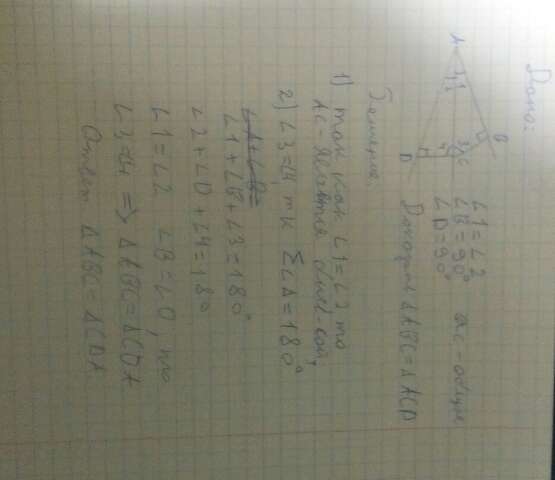 Дано:
A
1 2
B
3
4 C
D
∠1=∠2
∠B=90° AC-общая
∠D=90°
Доказать ΔABC=ΔACD
Решение.
1) так как ∠1=∠2 то
AC-является бисс-сой,
2) ∠3=∠4, тк Σ∠Δ=180°
∠1+∠B+∠3=180°
∠2+∠D+∠4=180
∠1=∠2 ∠B=∠D, то
∠3=∠4 => ΔABC=ΔCDA
Ответ ΔABC=ΔCDA